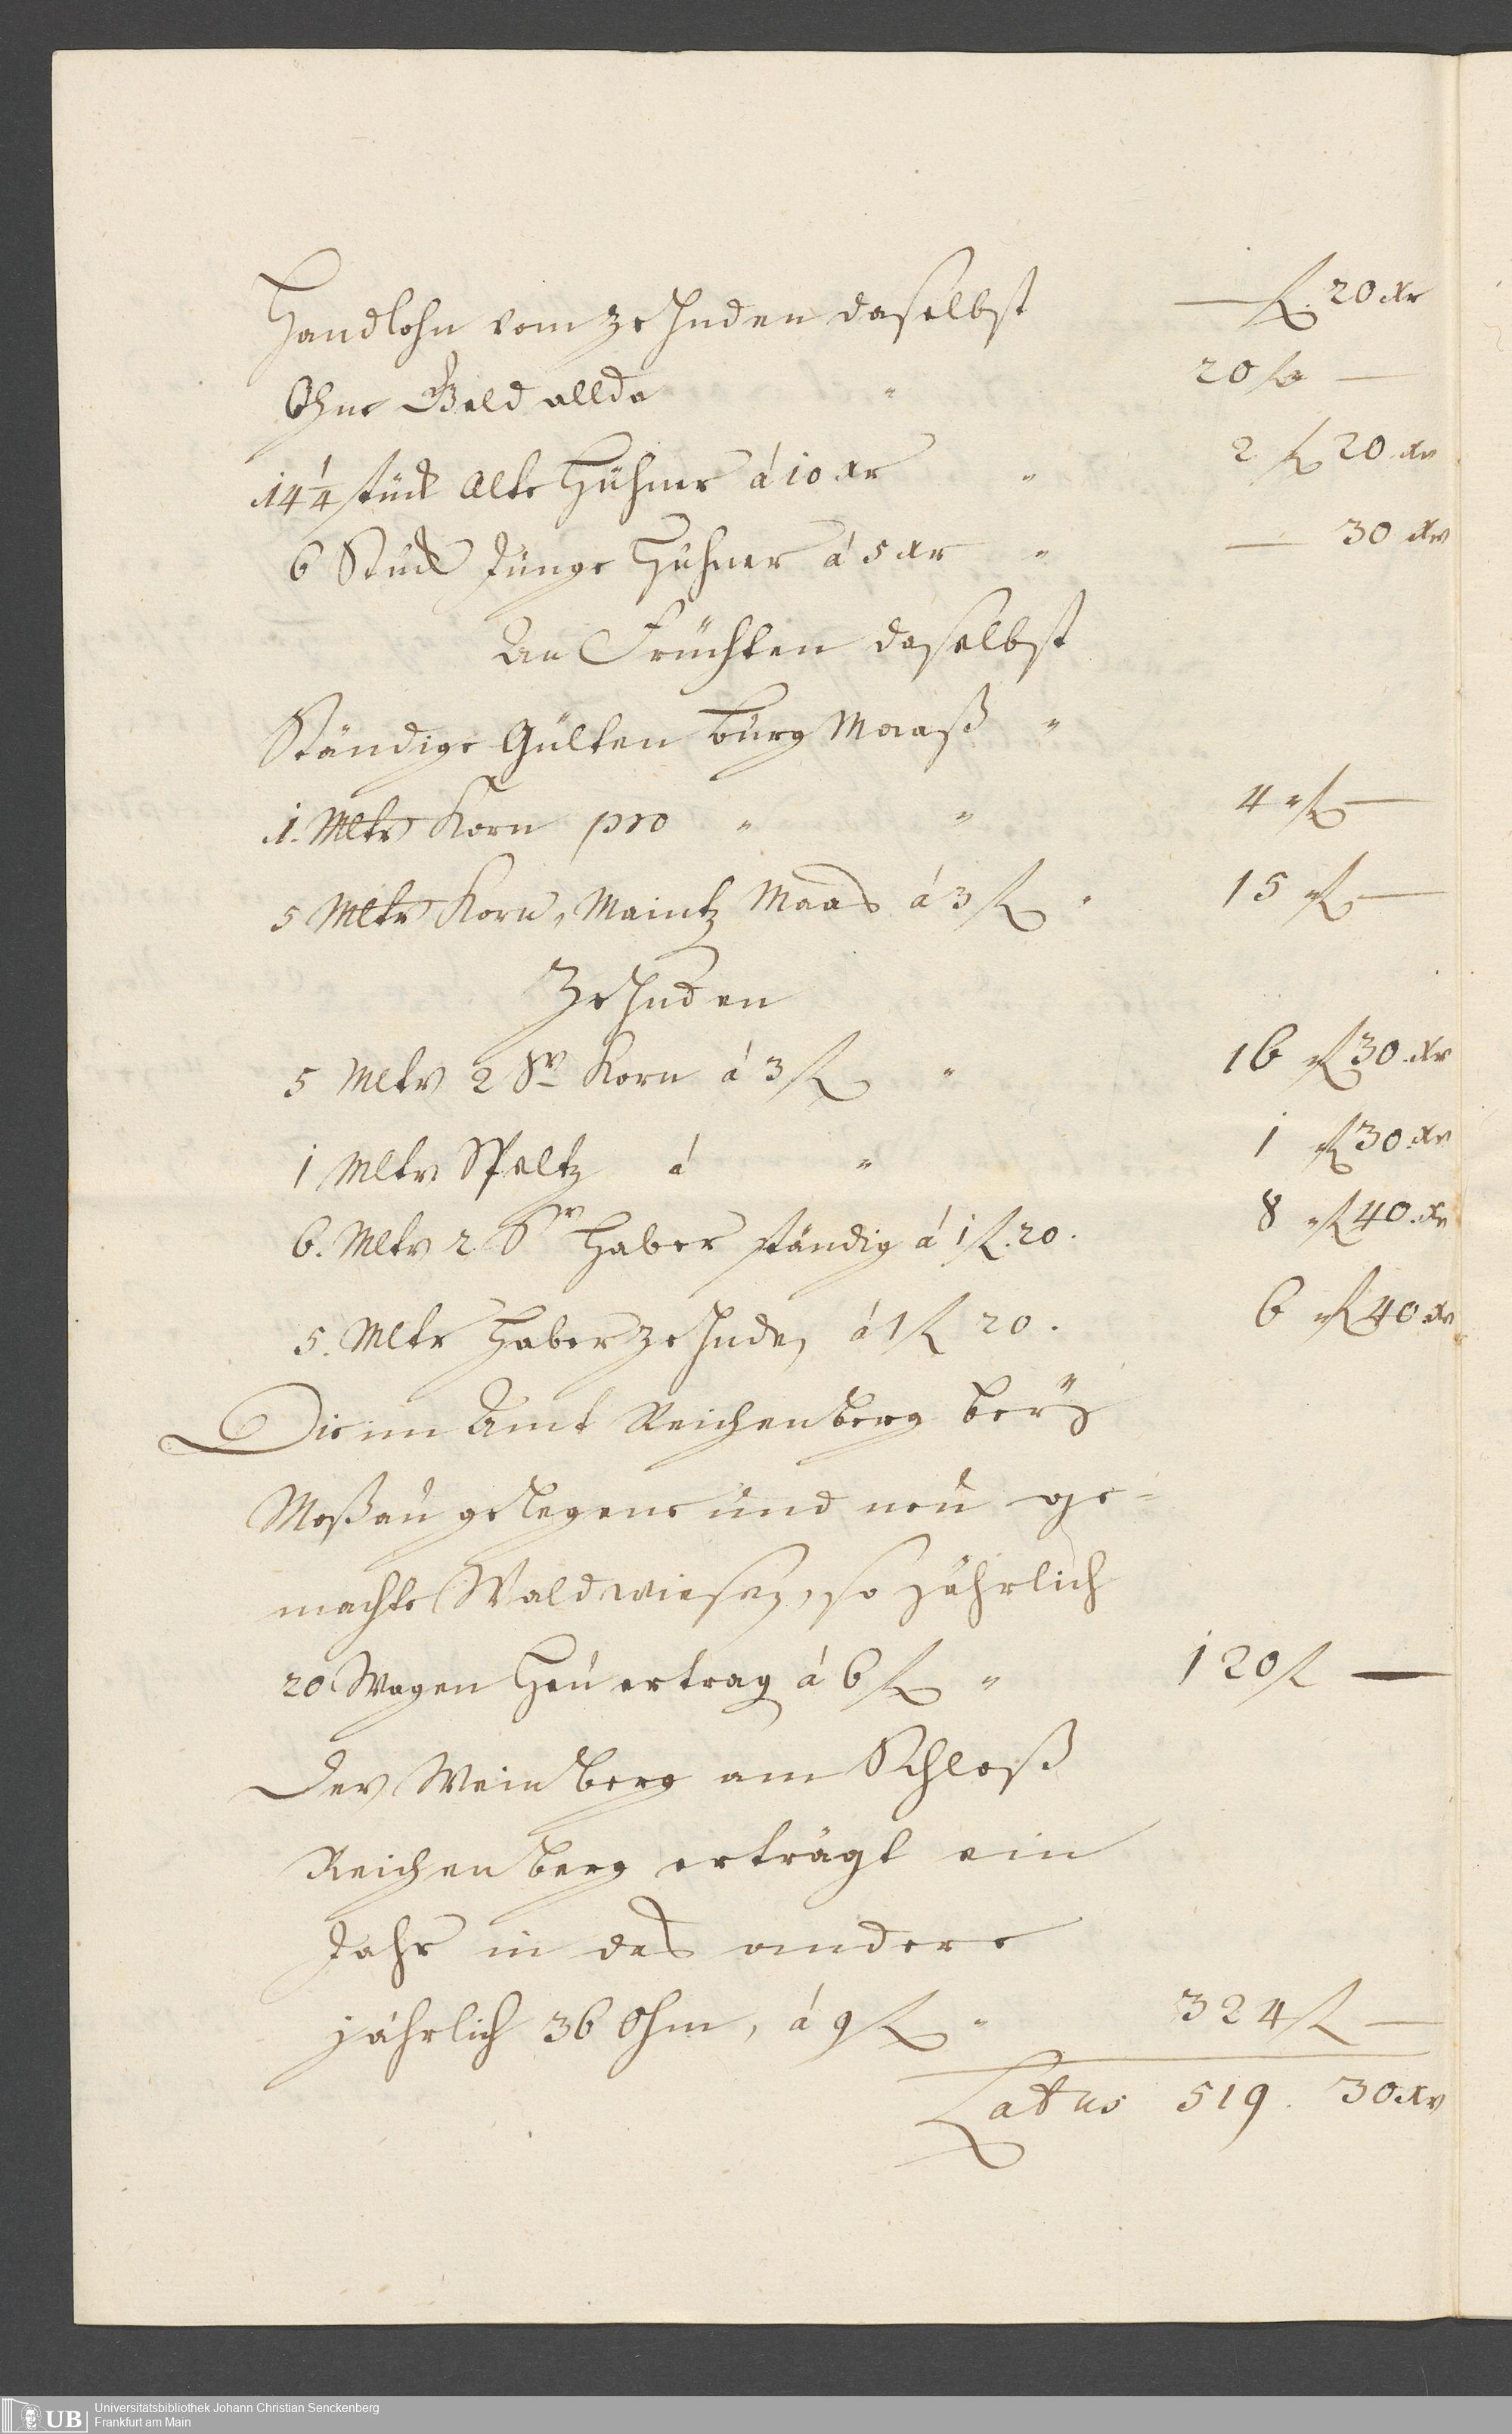 Handlohn vom zehnden daselbst — fl. 20 xr
Ohm Geld allda " 20 fl —
14 1/4 stück Alte Hühner á 10 xr " 2 fl 20 xr
6 Stück Junge Hühner á 5 xr " — 30 xr
An Früchten daselbst
Ständige Gülten burg Maaß "
1. Mltr Korn pro " " 4 fl —
5 Mltr Korn, Maintz Maas á 3 fl " 15 fl —
Zehnden
5 Mltr 2 Sr Korn á 3 fl " 16 fl 30 xr
1 Mltr Speltz á " 1 fl 30 xr
6. Mltr 2 Sr Haber ständig á 1 fl. 20. 8 fl 40. xr
5. Mltr Haber zehnden á 1 fl 20. 6 fl 40 xr
Die im Amt Reichenberg beÿ
Moßau gelegene und neu ge-
machte Waldwiesen, so jährlich
20 Wagen Heu ertrag á 6 fl " 120 fl —
Der Weinberg am Schloß
Reichenberg erträgt ein
Jahr in das andere
jährlich 36 Ohm, á 9 fl " 324 fl —
Latus 519. 30 xr
UB Universitätsbibliothek Johann Christian Senckenberg
Frankfurt am Main